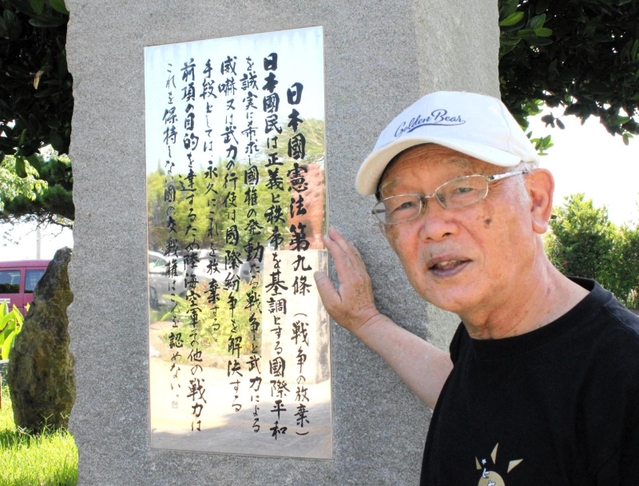 日本國憲法第九條（戦争の放棄）
日本國民は正義と秩序を基調とする國際平和
を誠実に希求し國権の発動たる戦争と武力による
威嚇又は武力の行使は國際紛争を解決する
手段としては永久にこれを放棄する
前項の目的を達するため陸海空軍その他の戦力は
これを保持しない國の交戦権はこれを認めない。
Golden Bear